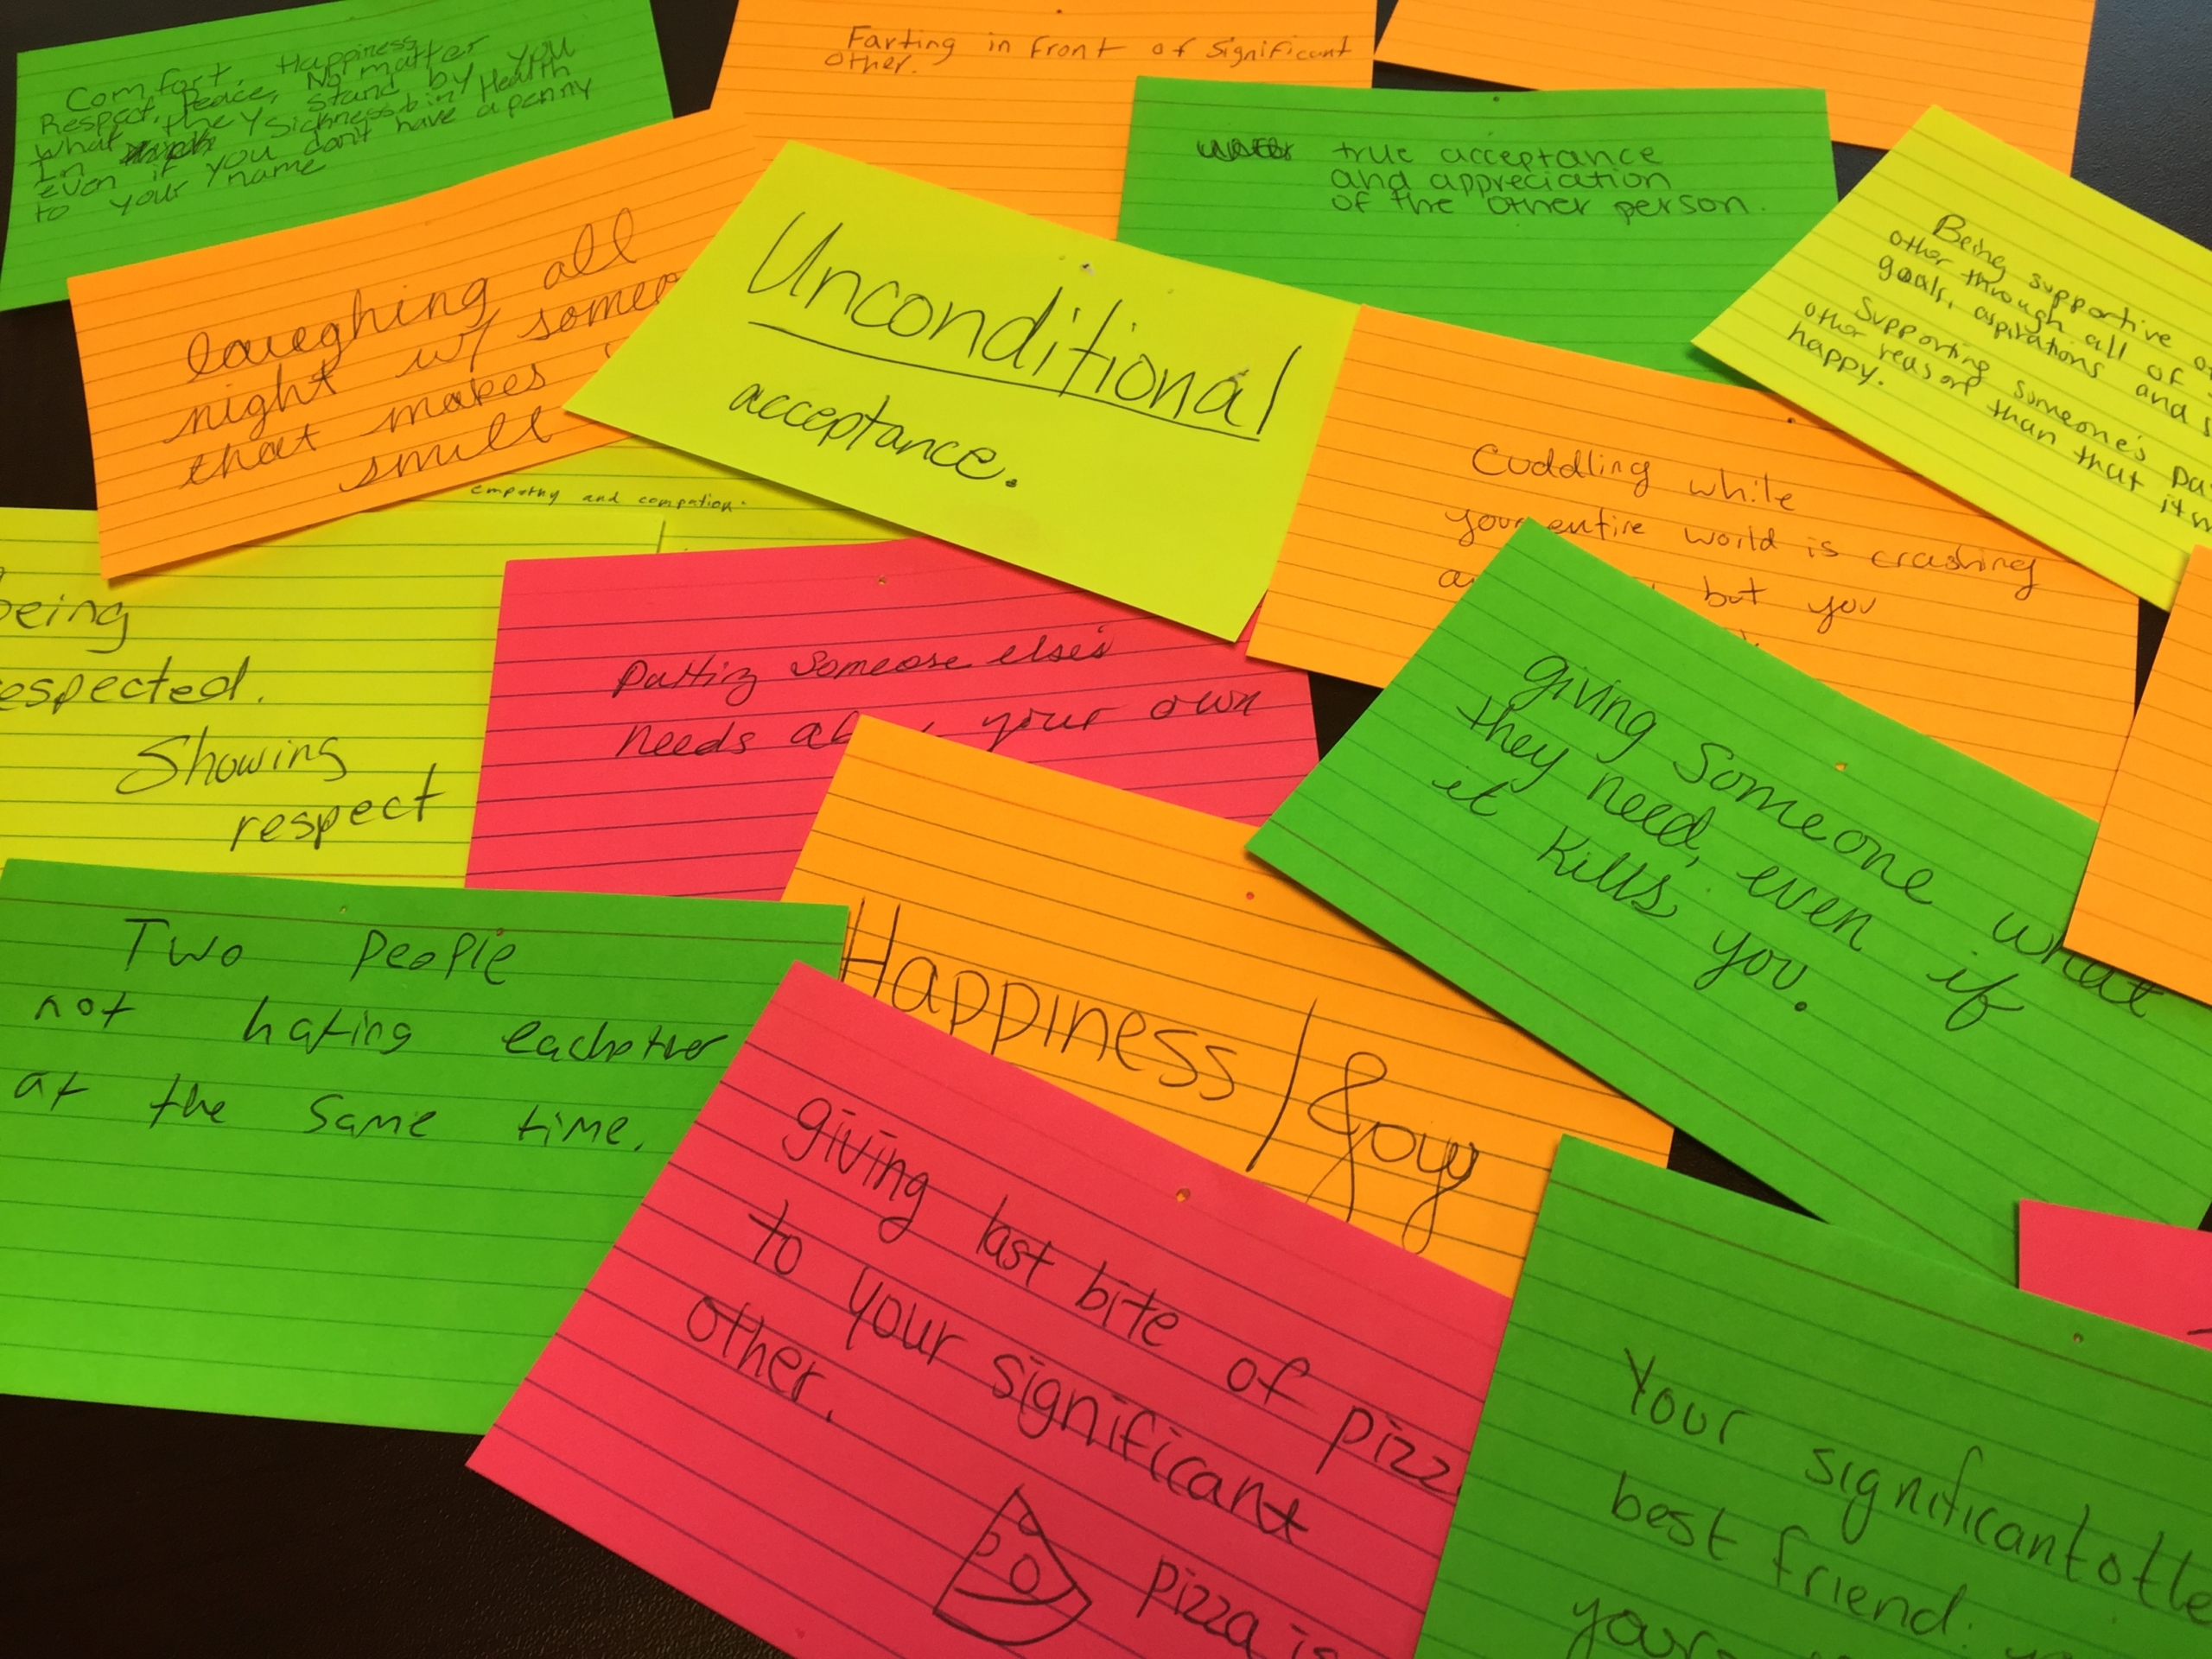 Comfort, Happiness
Respect, Peace, No matter
what they stand by you
In Sickness in Health
even if you don't have a penny
to your name
Farting in front of Significant
Other.
true acceptance
and appreciation
of the other person.
Being supportive
other through all of
goals, aspirations and
Supporting someone's
other reason than that it
happy.
laughing all
night w/
that makes
smile
Unconditional
acceptance.
empathy and compation.
Cuddling while
your entire world is crashing
but you
being
respected.
Showing
respect
Putting someone else's
needs your own
giving someone what
they need, even if
it kills you.
Two people
not hating eachother
at the same time.
Happiness / Joy
giving last bite of
to your significant
other.
pizza is
Your significant
best friend: